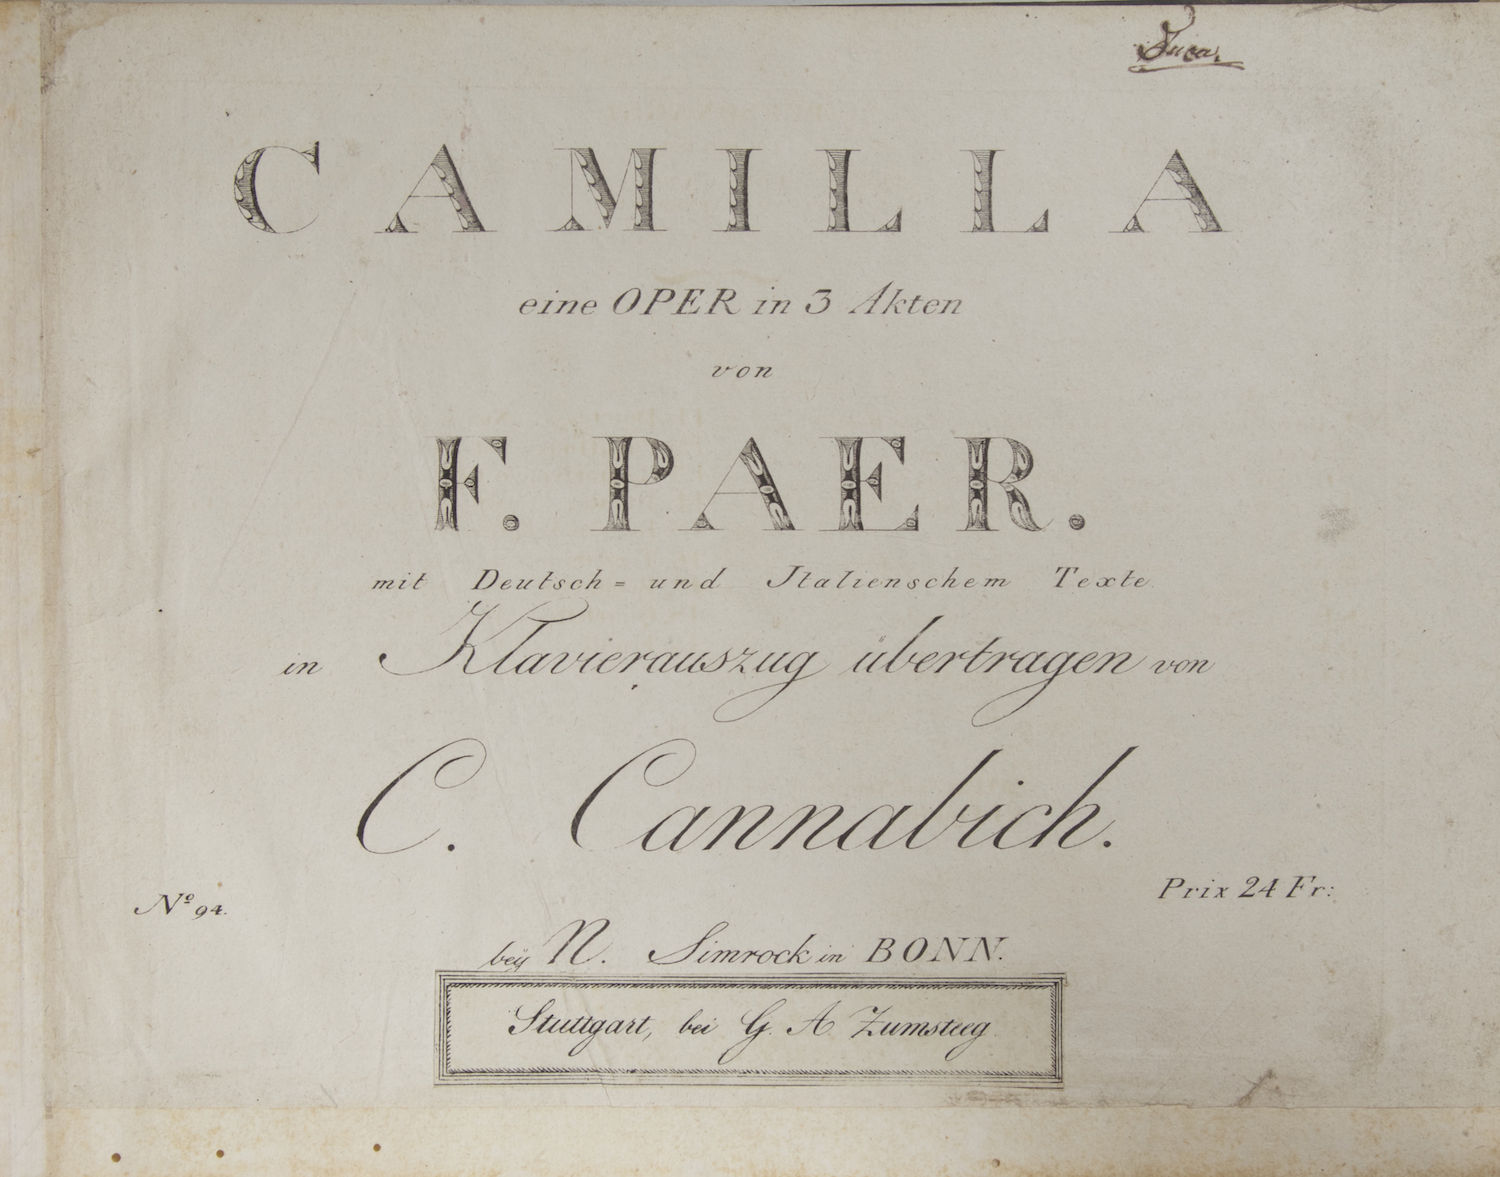 CAMILLA
eine OPER in 3 Akten
von
F. PAER.
mit Deutsch= und Italienschem Texte
in Klavierauszug übertragen von
C. Cannabich.
Nº 94.
Prix 24 Fr:
beÿ N. Simrock in BONN.
Stuttgart, bei G. A Zumsteeg